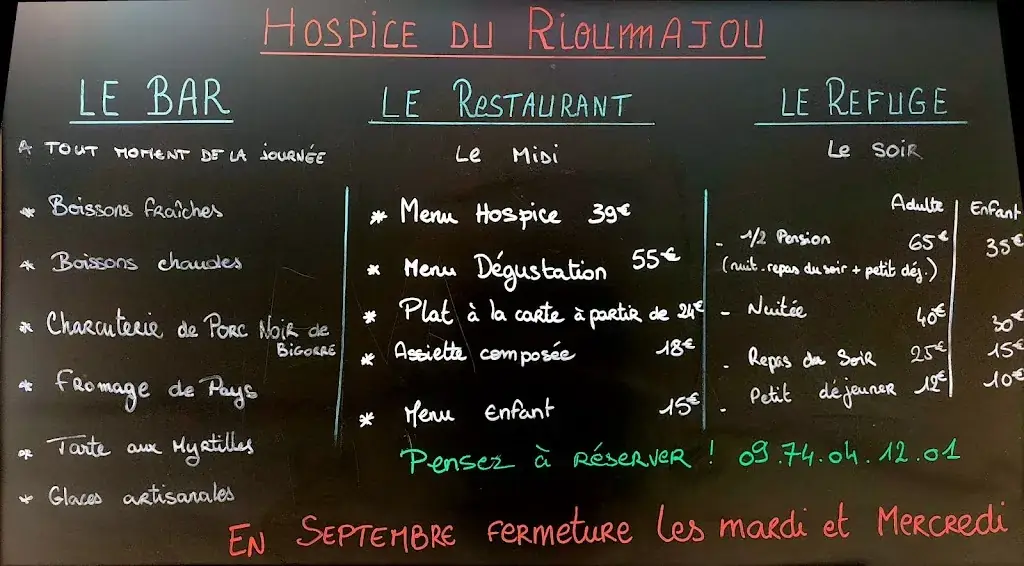 HOSPICE DU RIOUMAJOU
LE BAR
A TOUT MOMENT DE LA JOURNÉE
* Boissons fraîches
* Boissons chaudes
* Charcuterie de Porc Noir de
BIGORRE
* Fromage de Pays
* Tarte aux Myrtilles
* Glaces artisanales
LE RESTAURANT
Le Midi
* Menu Hospice 39€
* Menu Dégustation 55€
* Plat à la carte à partir de 24€
* Assiette composée 18€
* Menu enfant 15€
LE REFUGE
Le soir
Adulte Enfant
- 1/2 Pension 65€ 35€
(nuit.repas du soir + petit déj.)
- Nuitée 40€ 30€
- Repas du Soir 25€ 15€
- Petit déjeuner 12€ 10€
Pensez à réserver ! 09.74.04.12.01
En Septembre fermeture les mardi et Mercredi